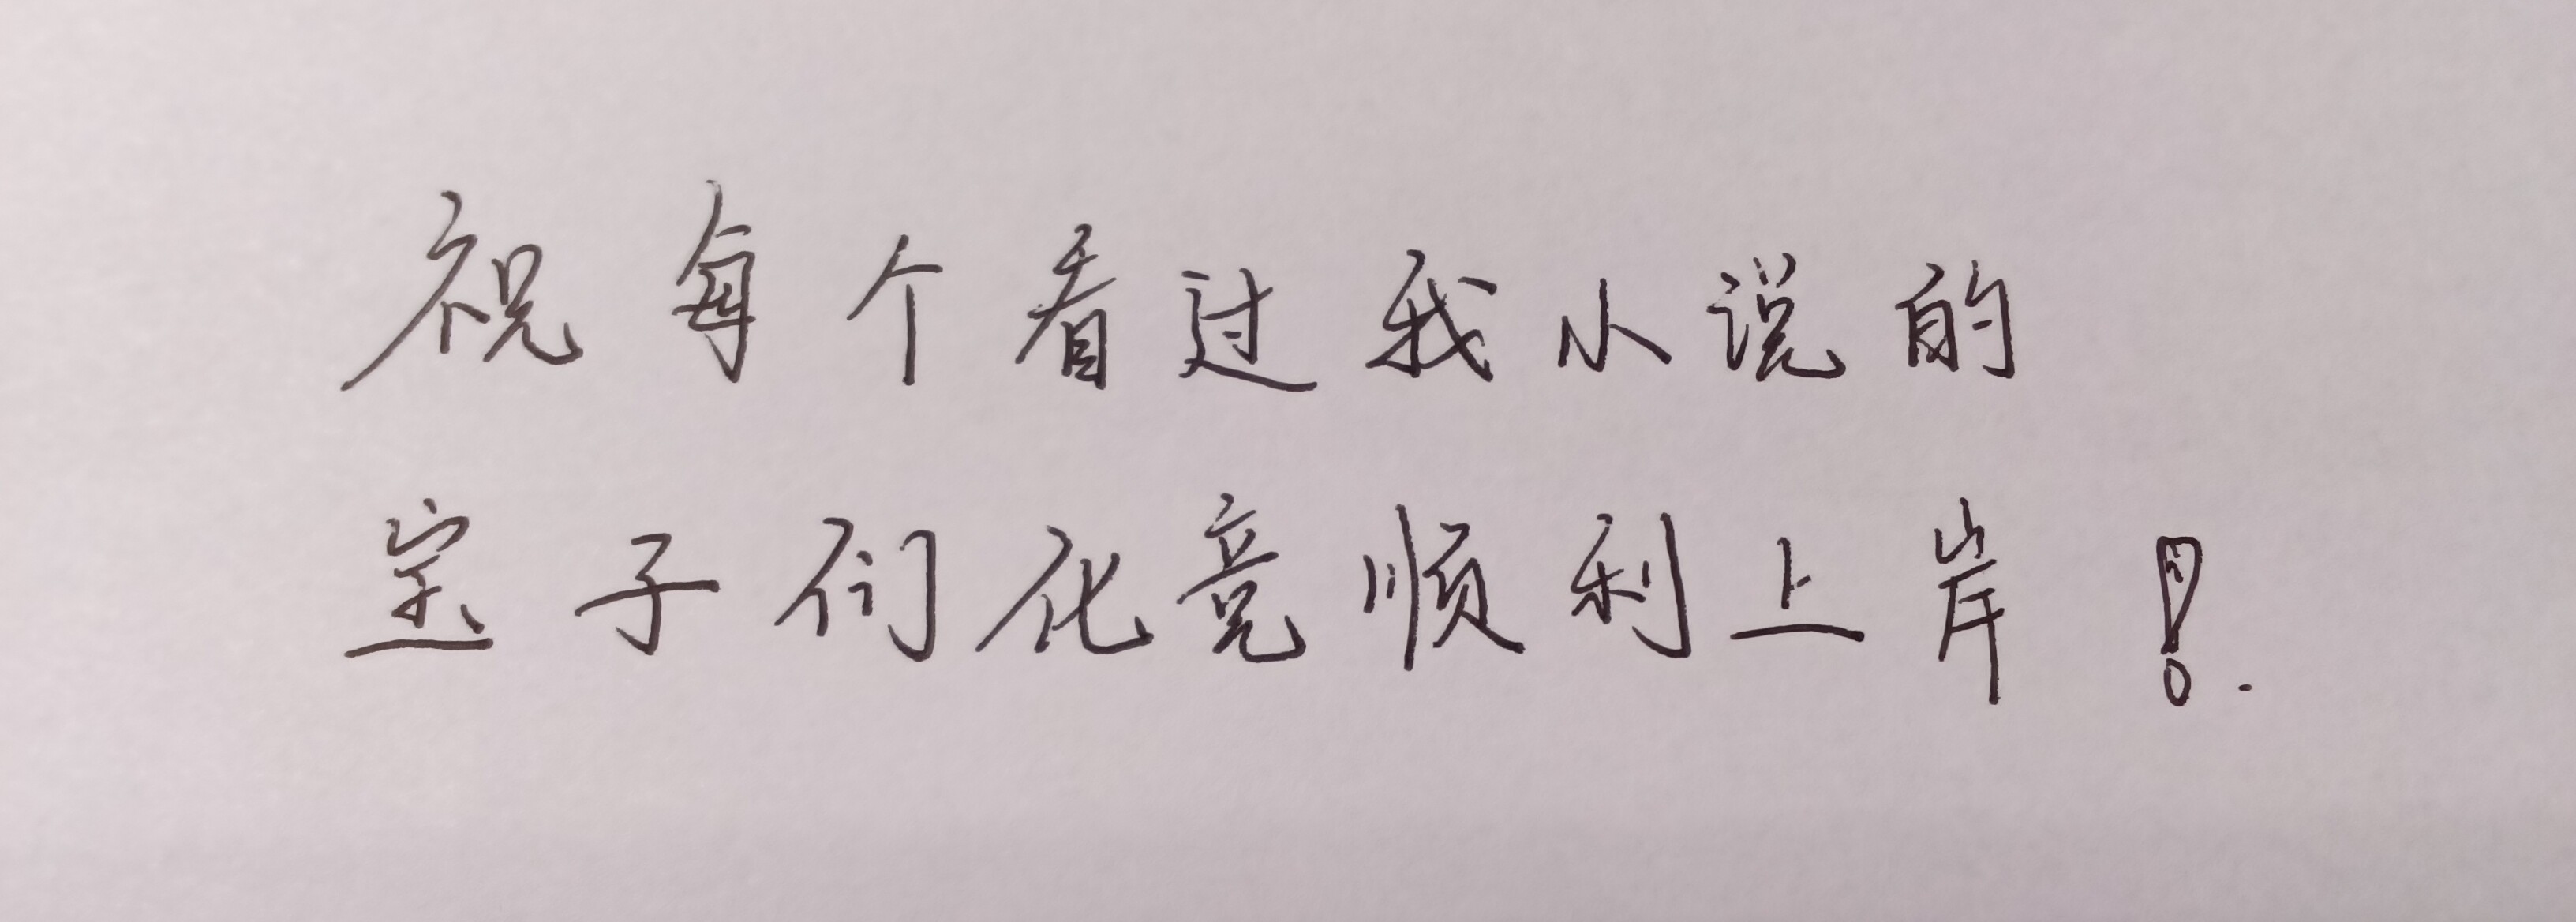 祝每个看过我小说的
宝子们化竞顺利上岸！.